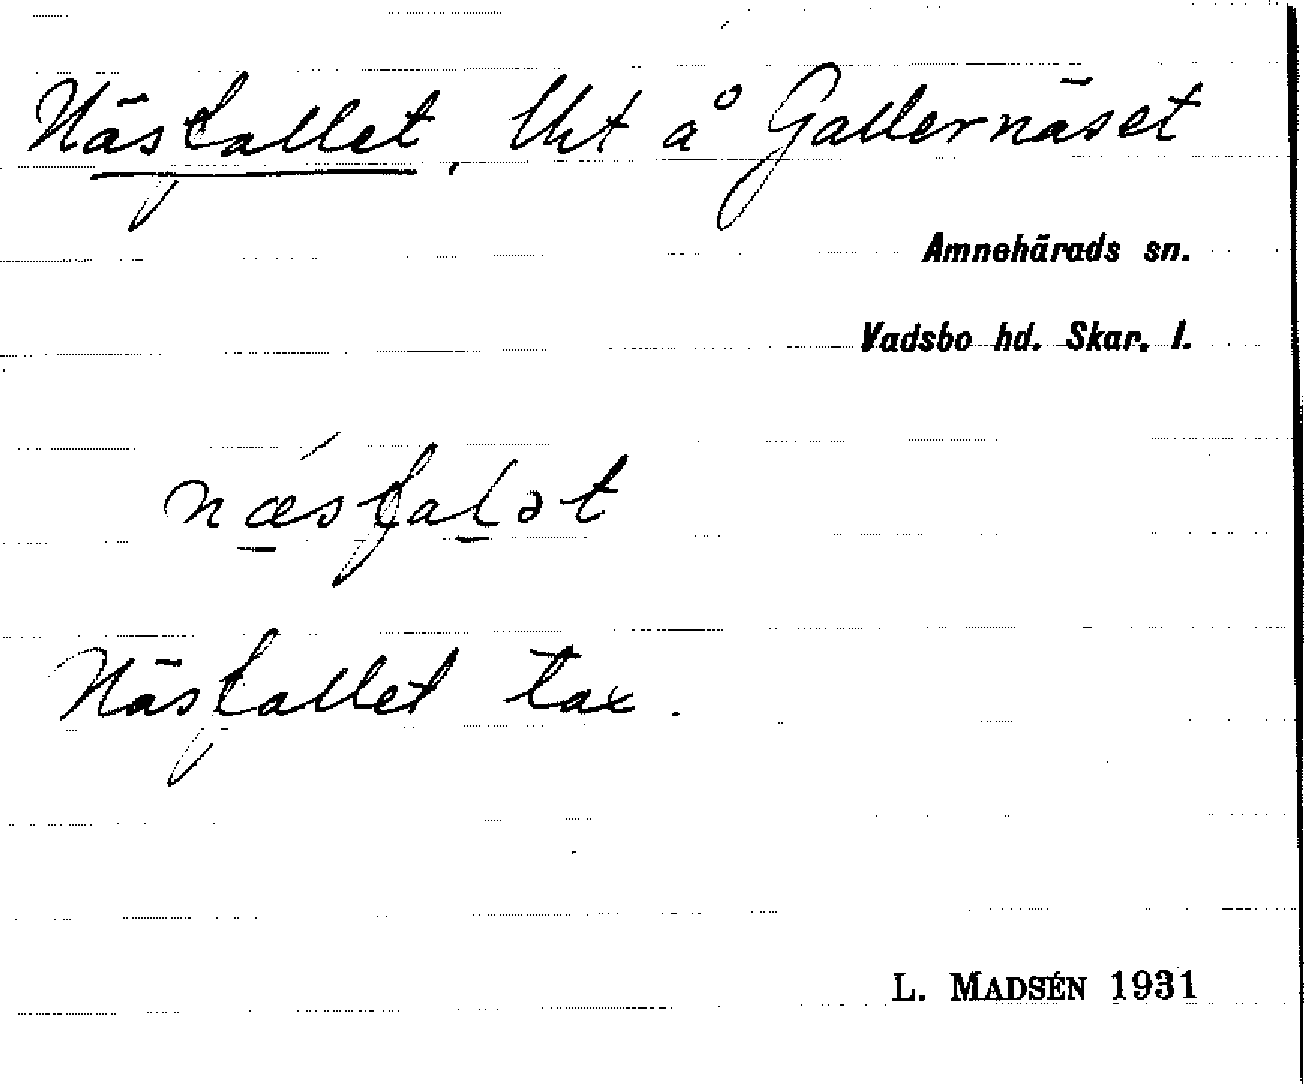 Näsfallet, lht å Gallernäset
Amnehärads sn.
Vadsbo hd. Skar. l.
nǽ̲sfal̲ət
Näsfallet tax.
L. MADSÉN 1931